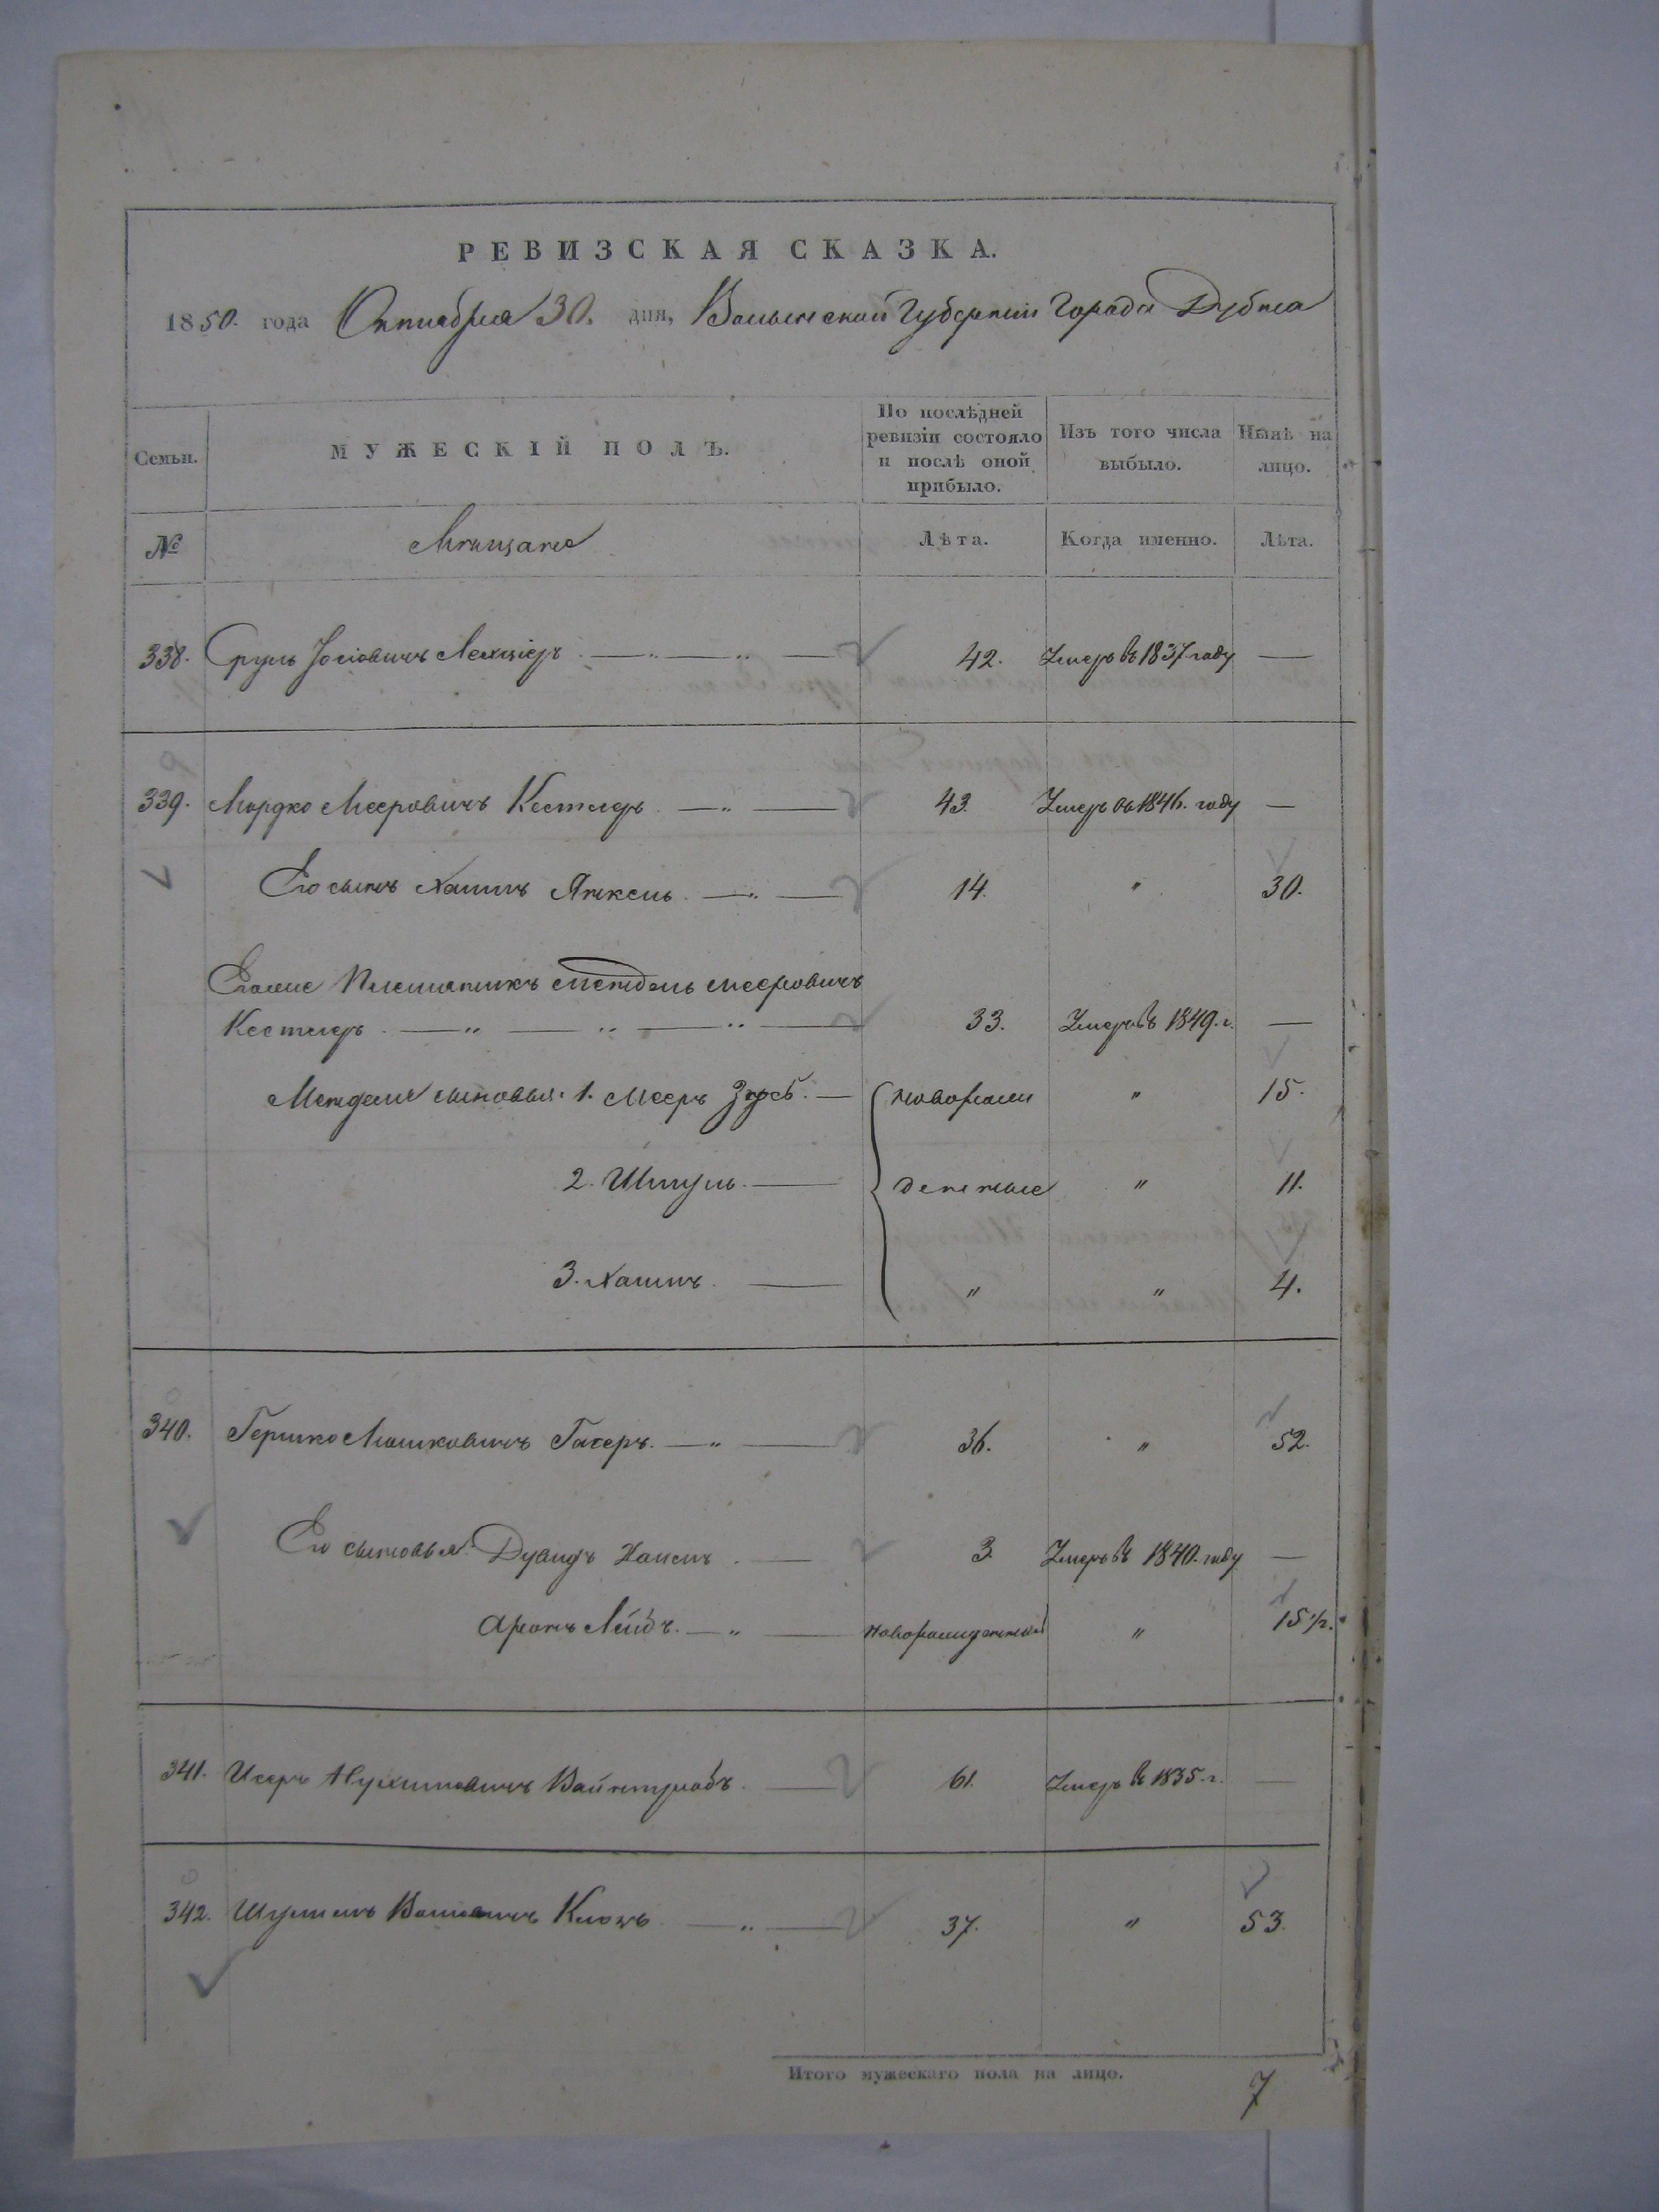 РЕВИЗСКАЯ СКАЗКА.
1850. года Октября 30. дня, Волынской Губернии Города Дубна
Семьи. МУЖЕСКІЙ ПОЛЪ. По послѣдней ревизіи состояло и послѣ оной прибыло. Изъ того числа выбыло. Нынѣ на лицо.
№ Мѣщане Лѣта. Когда именно. Лѣта.
338. Сруль Іосіовичъ 42. Умеръ въ 1837 году —
339. Мордко Мееровичъ Кестлеръ 43. Умеръ въ 1846. году —
Его сынъ Хаимъ Янкель 14. " 30.
Его же Племянникъ Мендель Мееровичъ
Кестлеръ 33. Умеръ въ 1849. г. —
Менделя сыновья: 1. Мееръ — новорож "  15.
2. Шмуль — денные " 11.
3. Хаимъ — " " 4.
340. Гершко Мошковичъ Гахеръ 36. " 52.
Его сыновья: Дувидъ 3. Умеръ въ 1840. году —
Аронъ Лейбъ новорожденный " 15 1/2.
341. Исеръ Нухимовичъ Вайнтраубъ 61. Умеръ въ 1835. г. —
342. 37. " 53.
Итого мужескаго пола на лицо. 7